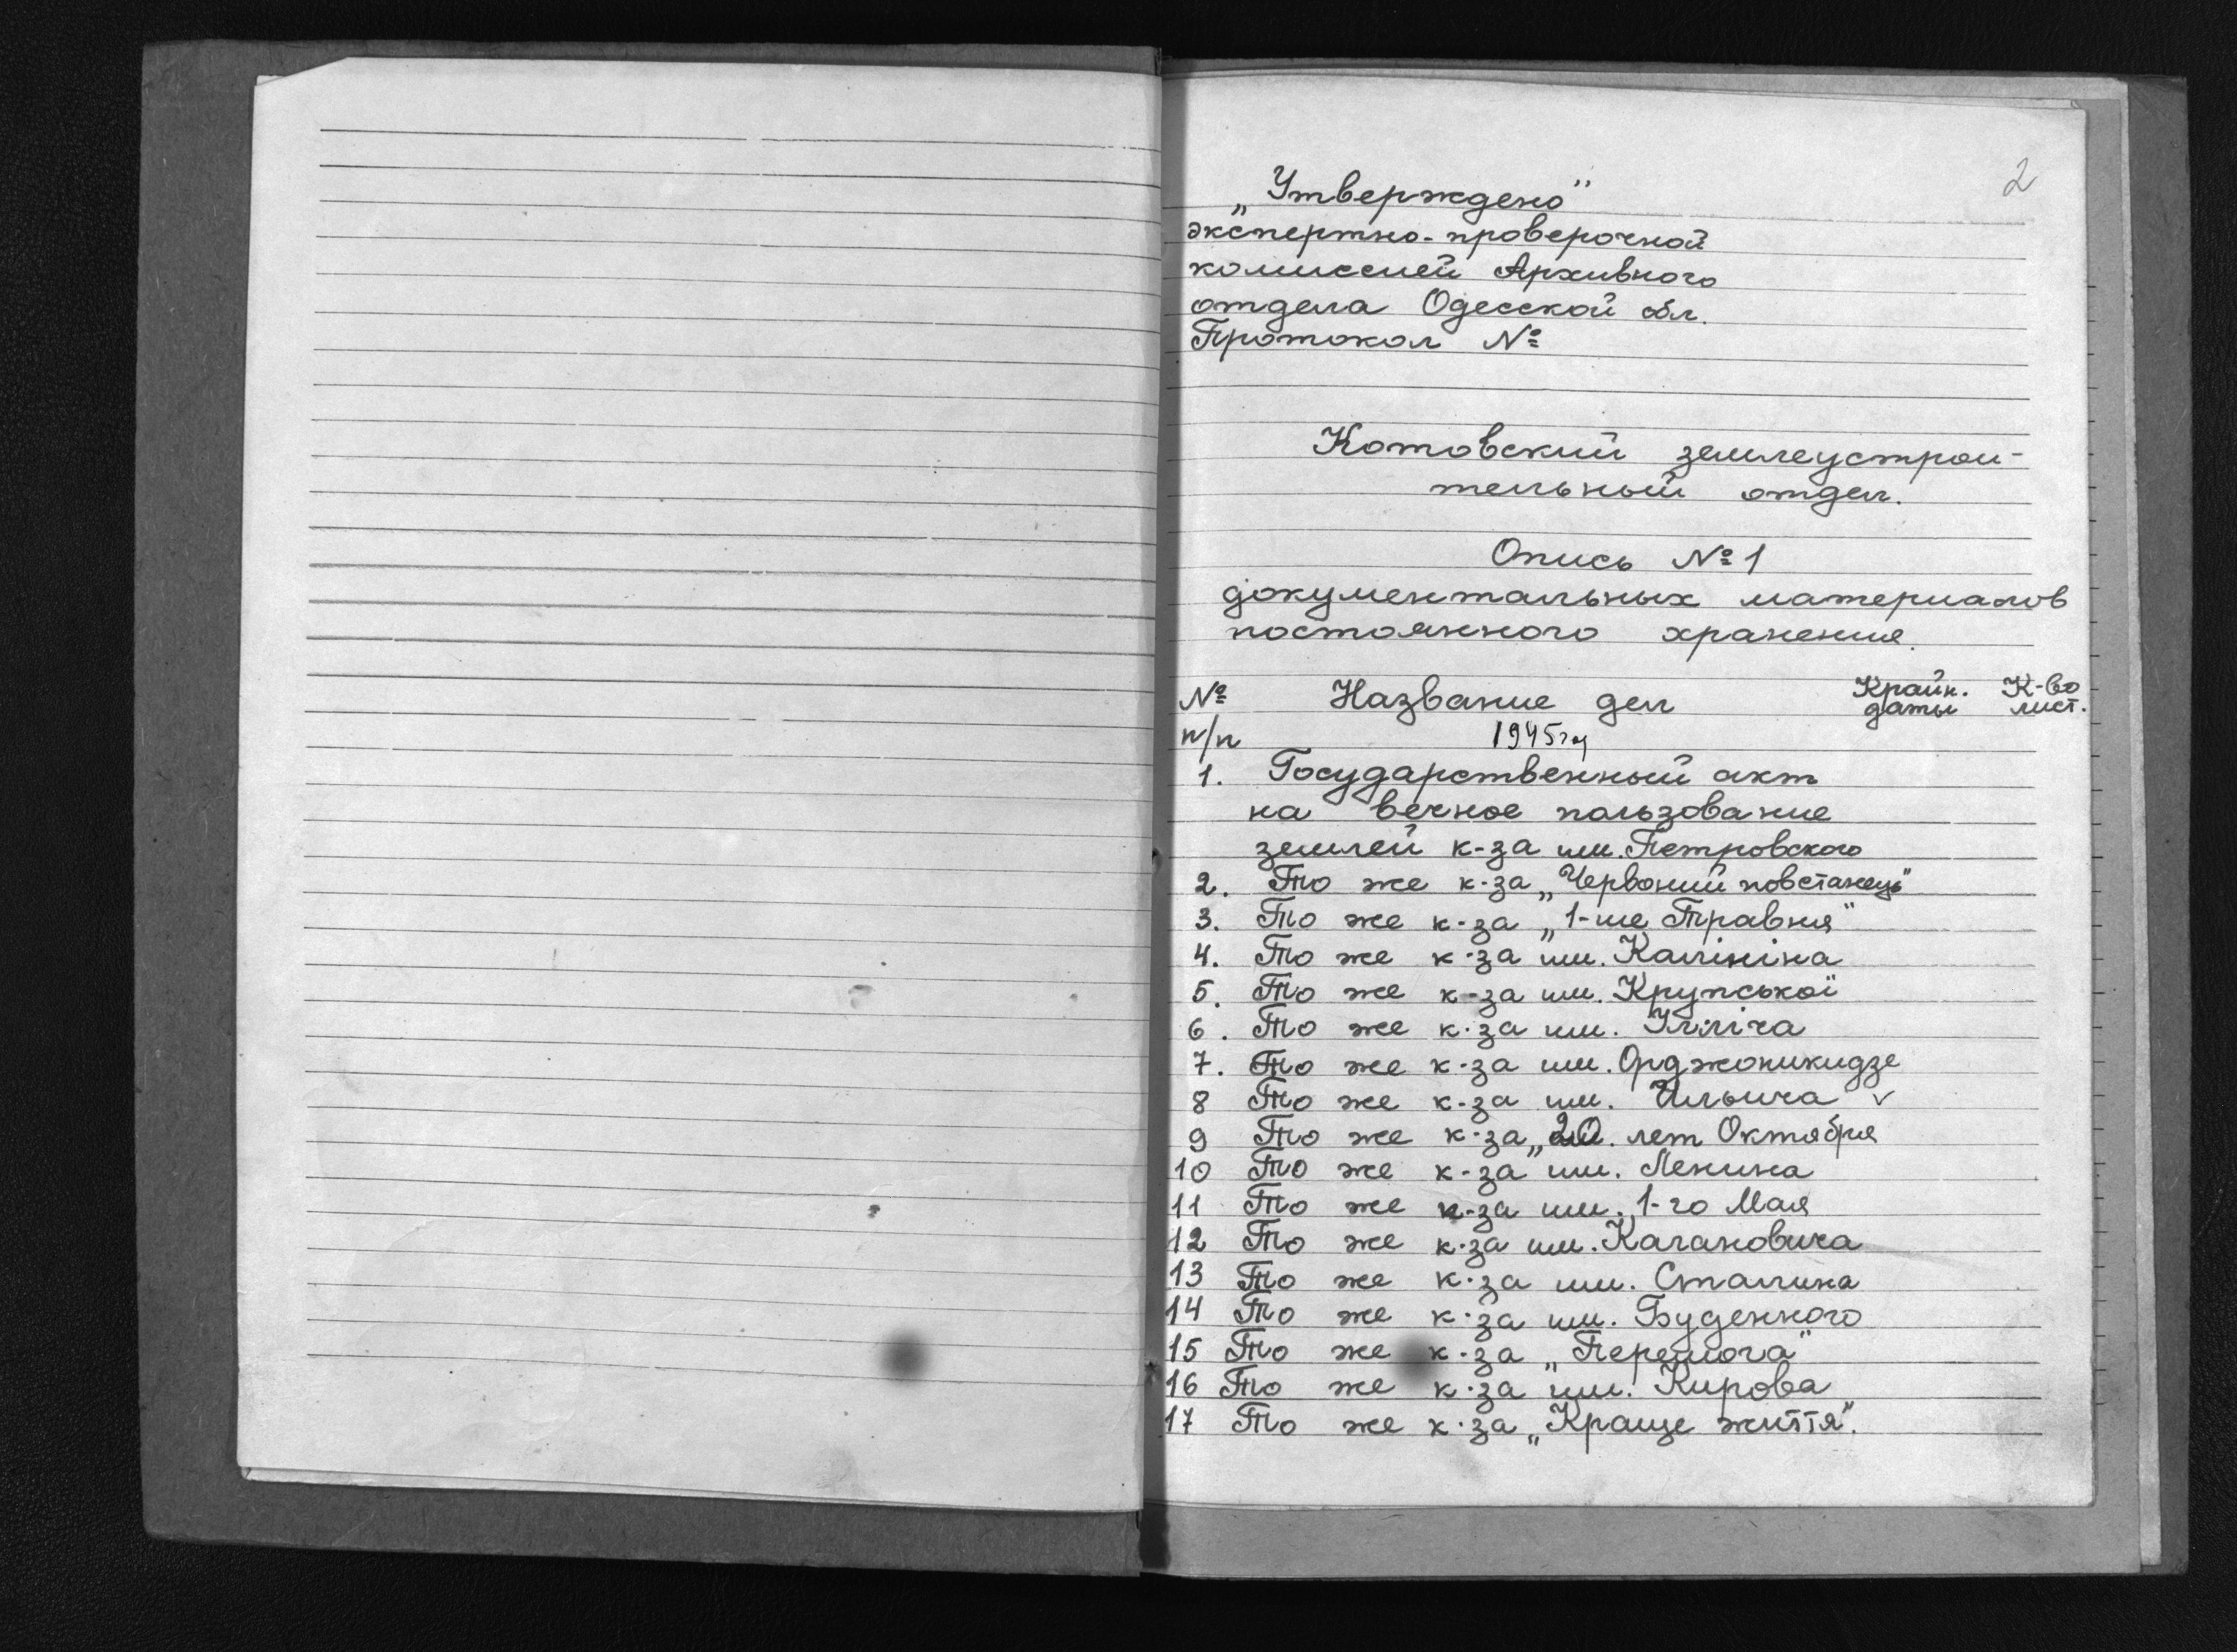 2
„Утверждено"
экспертно-проверочной
комиссией Архивного
отдела Одесской обл.
Протокол №
Котовский землеустрои-
тельный отдел.
Опись №1
документальных материалов
постоянного хранения.
№ Название дел Крайн. К-во
п/п даты лист.
1945год
1. Государственный акт
на вечное пользование
землей к-за им. Петровского
2. То же к-за „Червоний повстанець"
3. То же к-за „1-ше Травня"
4. То же к-за им. Калініна
5. То же к-за им. Крупської
6. То же к-за им. Ілліча
7. То же к-за им. Орджоникидзе
8 То же к-за им. Ильича v
9 То же к-за „20 лет Октября
10 То же к-за им. Ленина
11 То же к-за им. 1-го Мая
12 То же к-за им. Кагановича
13 То же к-за им. Сталина
14 То же к-за им. Буденного
15 То же к-за „Перемога"
16 То же к-за им. Кирова
17 То же к-за „Краще життя".